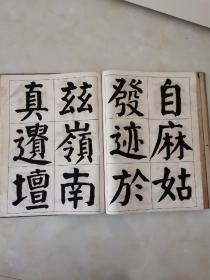 自麻姑
發迹於
茲嶺南
真遺壇